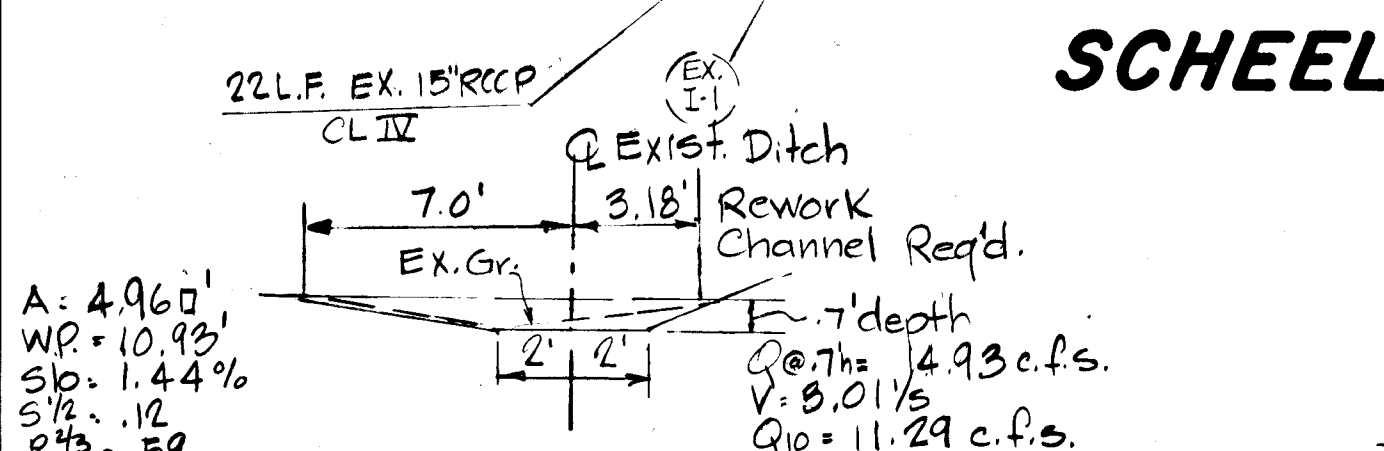 SCHEEL
22 L.F. EX. 15" RCCP
CL IV
EX.
I-1
℄ Exist. Ditch
7.0'
3.18'
Rework
Channel Req'd.
Ex. Gr.
.7' depth
2' 2'
A: 4.96 □'
W.P. = 10.93'
Slo: 1.44%
S 1/2 : .12
R 2/3 = .59
Q @ .7h = 14.93 c.f.s.
V: 3.01 '/s
Q10 = 11.29 c.f.s.